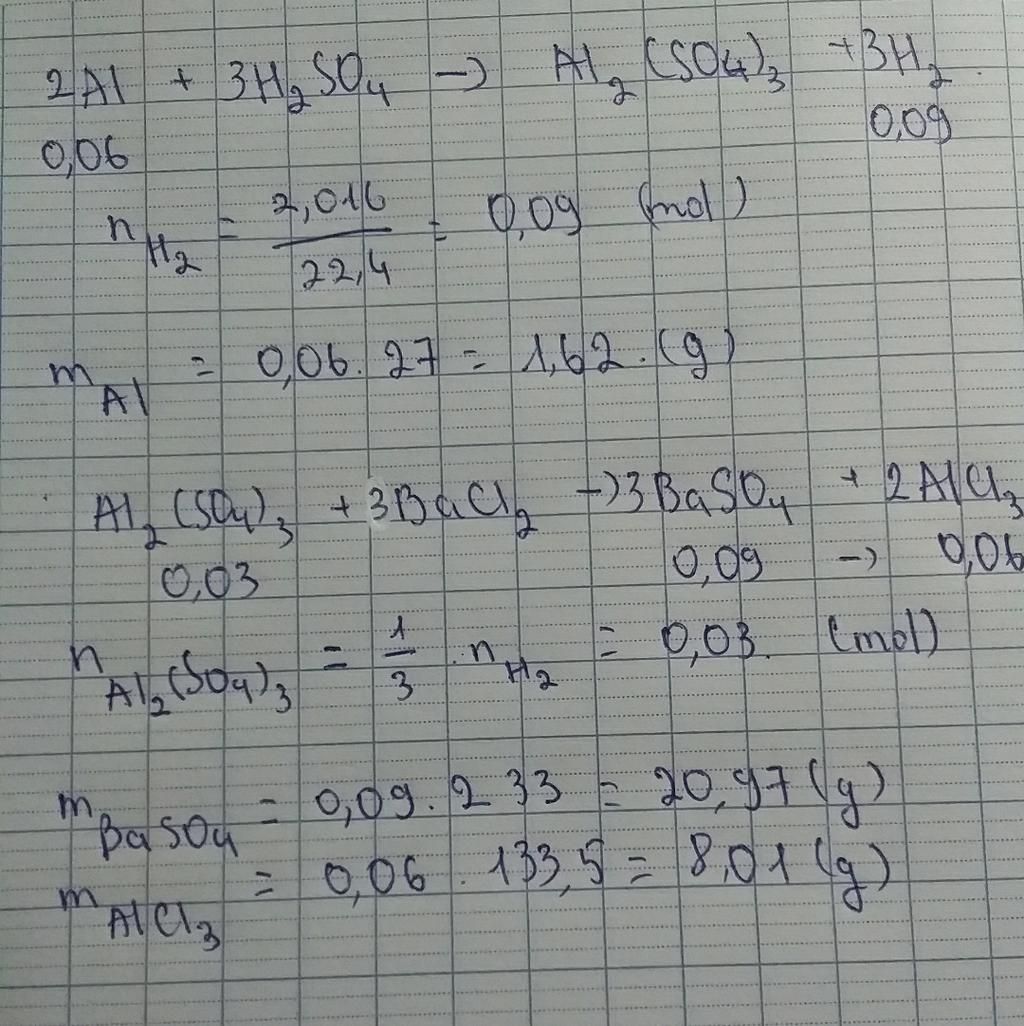 2Al + 3H₂SO₄ → Al₂(SO₄)₃ + 3H₂.
0,06 0,09
n H₂ = 2,016 / 22,4 = 0,09 (mol)
m Al = 0,06 . 27 = 1,62 . (g)
Al₂(SO₄)₃ + 3BaCl₂ → 3BaSO₄ + 2AlCl₃
0,03 0,09 → 0,06
n Al₂(SO₄)₃ = 1/3 . n H₂ = 0,03 . (mol)
m BaSO₄ = 0,09 . 233 = 20,97 (g)
m AlCl₃ = 0,06 . 133,5 = 8,01 (g)